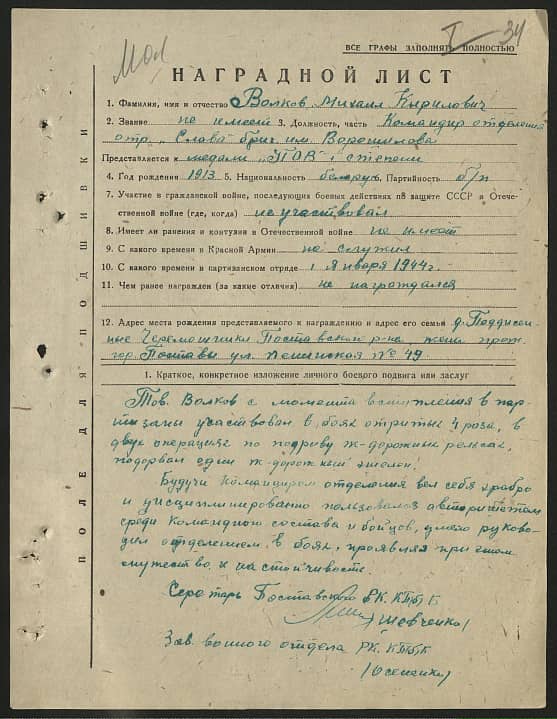 34
Мол
ВСЕ ГРАФЫ ЗАПОЛНЯТЬ ПОЛНОСТЬЮ
НАГРАДНОЙ ЛИСТ
1. Фамилия, имя и отчество Волков, Михаил Кирилович
2. Звание не имеет 3. Должность, часть Командир отделения
отр. „Слава" бриг. им. Ворошилова
Представляется к медали „ПОВ" I степени
4. Год рождения 1913 5. Национальность белорус 6. Партийность б/п
7. Участие в гражданской войне, последующих боевых действиях по защите СССР и Отече-
ственной войне (где, когда) не участвовал
8. Имеет ли ранения и контузии в Отечественной войне не имеет
9. С какого времени в Красной Армии не служил
10. С какого времени в партизанском отряде 1 Января 1944г.
11. Чем ранее награжден (за какие отличия) не награждался
12. Адрес места рождения представляемого к награждению и адрес его семьи д.
Черемошники Поставского р-на, жена прож.
гор. Поставы ул. № 49
1. Краткое, конкретное изложение личного боевого подвига или заслуг
Тов. Волков с момента вступления в пар-
тизаны участвовал в боях открытых 4 раза, в
двух операциях по подриву ж-дорожных рельсах,
подорвал один ж-дорожный эшелон.
Будучи Командиром отделения вел себя храбро
и дисциплинированно пользовался авторитетом
среди Командного состава и бойцов, умело руково-
дил отделением в боях, проявляя при этом
мужество и настойчивость.
Секретарь Поставского РК. КП/б/Б
/Шевченко/
Зав. военного отдела РК. КП/б/Б
ПОЛЕ ДЛЯ ПОДШИВКИ